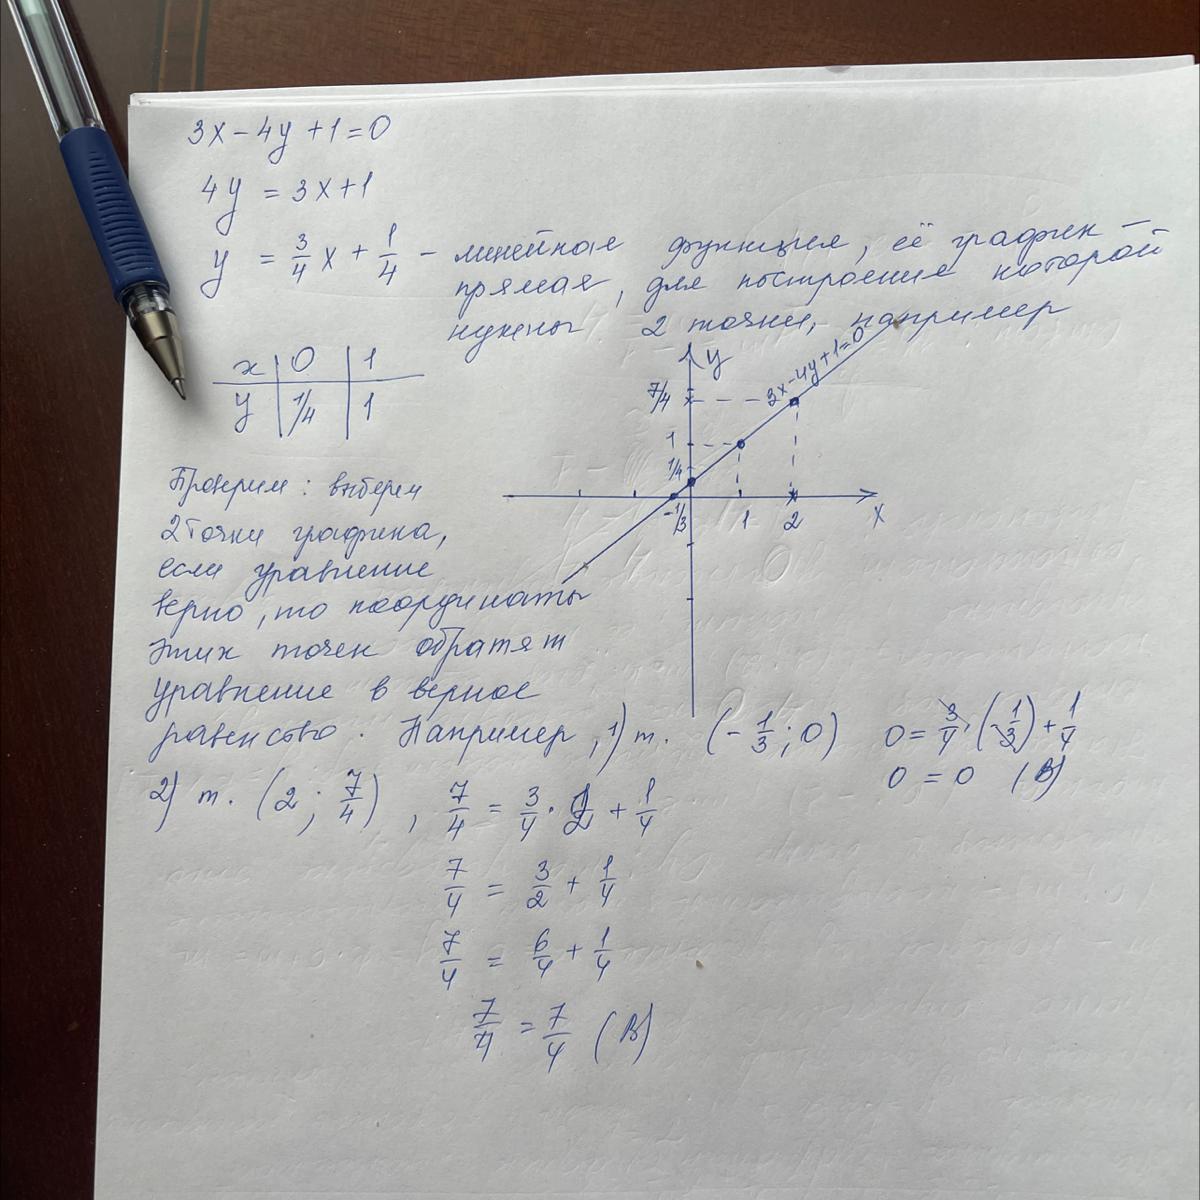 3x-4y+1=0
4y = 3x+1
y = 3/4 x + 1/4 - линейная функция, её график -
прямая, для построения которой
нужны 2 точки, например
x 0 1
y 1/4 1
y
7/4
3x-4y+1=0
1
1/4
-1/3 1 2 x
Проверим: выберем
2 точки графика,
если уравнение
верно, то координаты
этих точек обратят
уравнение в верное
равенство. Например, 1) т. (-1/3; 0) 0 = 3/4 · (-1/3) + 1/4
0 = 0 (В)
2) т. (2; 7/4), 7/4 = 3/4 · 2 + 1/4
7/4 = 3/2 + 1/4
7/4 = 6/4 + 1/4
7/4 = 7/4 (В)